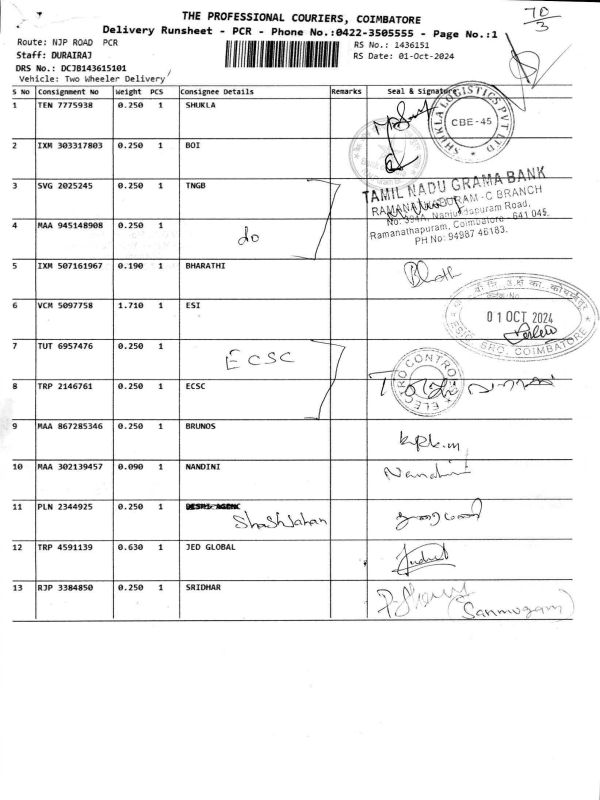 THE PROFESSIONAL COURIERS, COIMBATORE
70
3
Delivery Runsheet - PCR - Phone No.:0422-3505555 - Page No.:1
Route: NJP ROAD PCR
RS No.: 1436151
Staff: DURAIRAJ
RS Date: 01-Oct-2024
DRS No.: DCJB143615101
Vehicle: Two Wheeler Delivery
S No Consignment No Weight PCS Consignee Details Remarks Seal & Signature
1 TEN 7775938 0.250 1 SHUKLA
SHUKLA LOGISTICS PVT LTD
CBE-45
2 IXM 303317803 0.250 1 BOI
3 SVG 2025245 0.250 1 TNGB
TAMIL NADU GRAMA BANK
RAMANATHAPURAM - C BRANCH
No: 394A, Nanjundapuram Road,
Ramanathapuram, Coimbatore - 641 045.
PH No: 94987 46183.
4 MAA 945148908 0.250 1
do
5 IXM 507161967 0.190 1 BHARATHI
6 VCM 5097758 1.710 1 ESI
01 OCT 2024
ESIC, SRO, COIMBATORE
7 TUT 6957476 0.250 1 ECSC
8 TRP 2146761 0.250 1 ECSC
ELECTRO CONTROL
9 MAA 867285346 0.250 1 BRUNOS
10 MAA 302139457 0.090 1 NANDINI
Nandini
11 PLN 2344925 0.250 1
ShahJahan
12 TRP 4591139 0.630 1 JED GLOBAL
13 RJP 3384850 0.250 1 SRIDHAR
(Sanmugam)